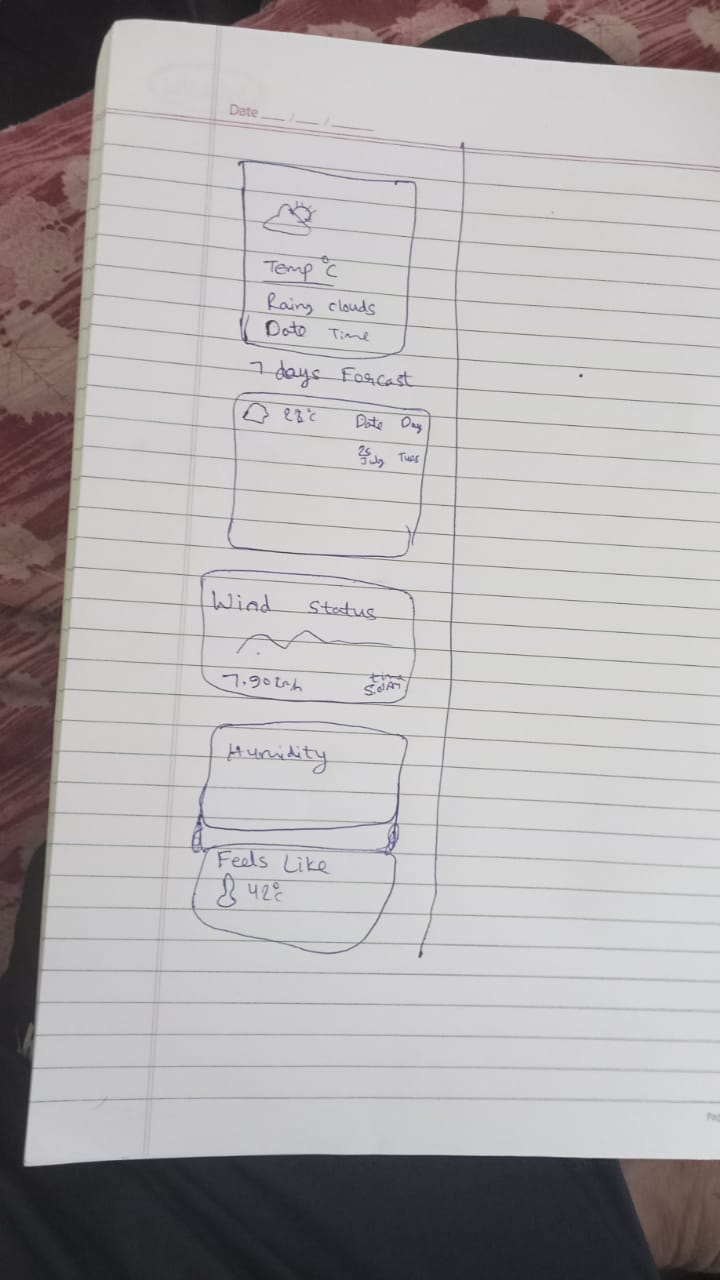 Date __/__/____
Temp °C
Rainy clouds
Date Time
7 days Forcast
28°C Date Day
25 July Tues
Wind Status
7.90km/h time 5:01AM
Humidity
Feels Like
42°C